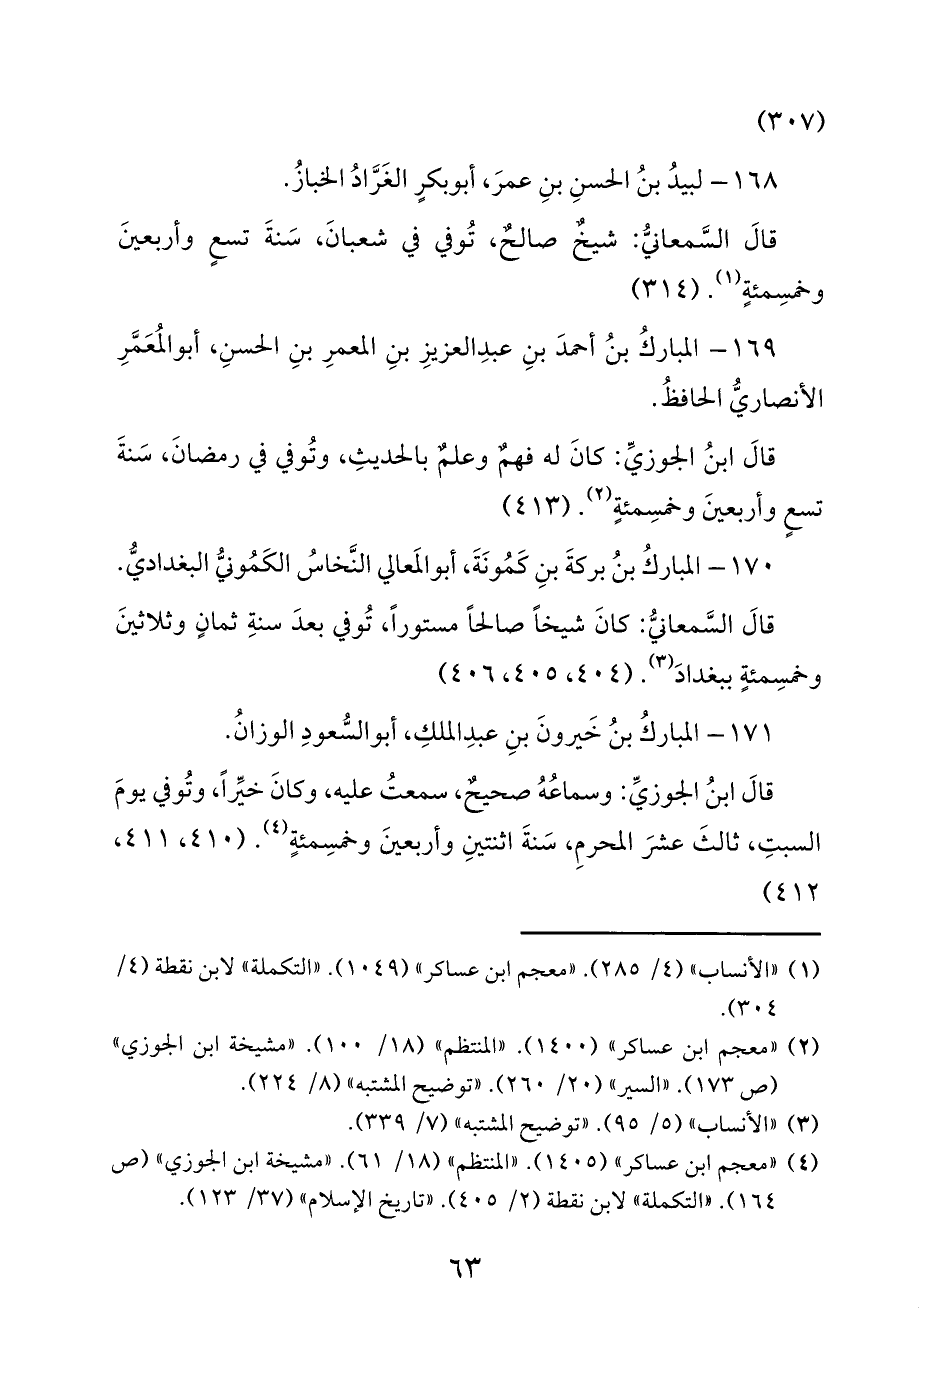 (٣٠٧)
١٦٨ – لبيدُ بنُ الحسنِ بنِ عمرَ، أبوبكرٍ الغَرَّادُ الخبازُ.
قالَ السَّمعانيُّ: شيخٌ صالحٌ، تُوفي في شعبانَ، سَنةَ تسعٍ وأربعينَ
وخمسِمئةٍ(١). (٣١٤)
١٦٩ – المباركُ بنُ أحمدَ بنِ عبدِالعزيزِ بنِ المعمرِ بنِ الحسنِ، أبوالمُعَمَّرِ
الأنصاريُّ الحافظُ.
قالَ ابنُ الجوزيِّ: كانَ له فهمٌ وعلمٌ بالحديثِ، وتُوفي في رمضانَ، سَنةَ
تسعٍ وأربعينَ وخمسِمئةٍ(٢). (٤١٣)
١٧٠ – المباركُ بنُ بركةَ بنِ كَمُونَةَ، أبوالمَعالي النَّخاسُ الكَمُونيُّ البغداديُّ.
قالَ السَّمعانيُّ: كانَ شيخاً صالحاً مستوراً، تُوفي بعدَ سنةِ ثمانٍ وثلاثينَ
وخمسِمئةٍ ببغدادَ(٣). (٤٠٤، ٤٠٥، ٤٠٦)
١٧١ – المباركُ بنُ خَيرونَ بنِ عبدِالملكِ، أبوالسُّعودِ الوزانُ.
قالَ ابنُ الجوزيِّ: وسماعُهُ صحيحٌ، سمعتُ عليه، وكانَ خيِّراً، وتُوفي يومَ
السبتِ، ثالثَ عشرَ المحرمِ، سَنةَ اثنتينِ وأربعينَ وخمسِمئةٍ(٤). (٤١٠، ٤١١،
٤١٢)
(١) «الأنساب» (٤/ ٢٨٥). «معجم ابن عساكر» (١٠٤٩). «التكملة» لابن نقطة (٤/
٣٠٤).
(٢) «معجم ابن عساكر» (١٤٠٠). «المنتظم» (١٨/ ١٠٠). «مشيخة ابن الجوزي»
(ص ١٧٣). «السير» (٢٠/ ٢٦٠). «توضيح المشتبه» (٨/ ٢٢٤).
(٣) «الأنساب» (٥/ ٩٥). «توضيح المشتبه» (٧/ ٣٣٩).
(٤) «معجم ابن عساكر» (١٤٠٥). «المنتظم» (١٨/ ٦١). «مشيخة ابن الجوزي» (ص
١٦٤). «التكملة» لابن نقطة (٢/ ٤٠٥). «تاريخ الإسلام» (٣٧/ ١٢٣).
٦٣